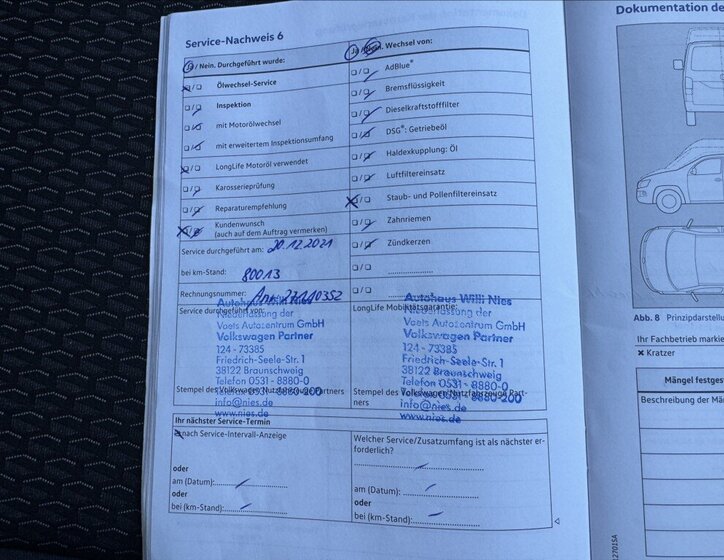 Service-Nachweis 6
Ja / Nein. Durchgeführt wurde:
Ölwechsel-Service
Inspektion
mit Motorölwechsel
mit erweitertem Inspektionsumfang
LongLife Motoröl verwendet
Karosserieprüfung
Reparaturempfehlung
Kundenwunsch
(auch auf dem Auftrag vermerken)
Service durchgeführt am: 20.12.2021
bei km-Stand: 80013
Rechnungsnummer:
Service durchgeführt von:
Autohaus Willi Nies
Niederlassung der
Voets Autozentrum GmbH
Volkswagen Partner
124 - 73385
Friedrich-Seele-Str. 1
38122 Braunschweig
Telefon 0531 - 8880-0
Telefax 0531 - 8880-200
info@nies.de
www.nies.de
Stempel des Volkswagen Nutzfahrzeuge Partners
Ja / Nein. Wechsel von:
AdBlue®
Bremsflüssigkeit
Dieselkraftstofffilter
DSG®: Getriebeöl
Haldexkupplung: Öl
Luftfiltereinsatz
Staub- und Pollenfiltereinsatz
Zahnriemen
Zündkerzen
LongLife Mobilitätsgarantie:
Autohaus Willi Nies
Niederlassung der
Voets Autozentrum GmbH
Volkswagen Partner
124 - 73385
Friedrich-Seele-Str. 1
38122 Braunschweig
Telefon 0531 - 8880-0
Telefax 0531 - 8880-200
info@nies.de
www.nies.de
Stempel des Volkswagen Nutzfahrzeuge Part-
ners
Ihr nächster Service-Termin
nach Service-Intervall-Anzeige
oder
am (Datum):
oder
bei (km-Stand):
Welcher Service/Zusatzumfang ist als nächster er-
forderlich?
am (Datum):
oder
bei (km-Stand):
Dokumentation de
Abb. 8 Prinzipdarstellu
Ihr Fachbetrieb markie
✖ Kratzer
Mängel festges
Beschreibung der Män